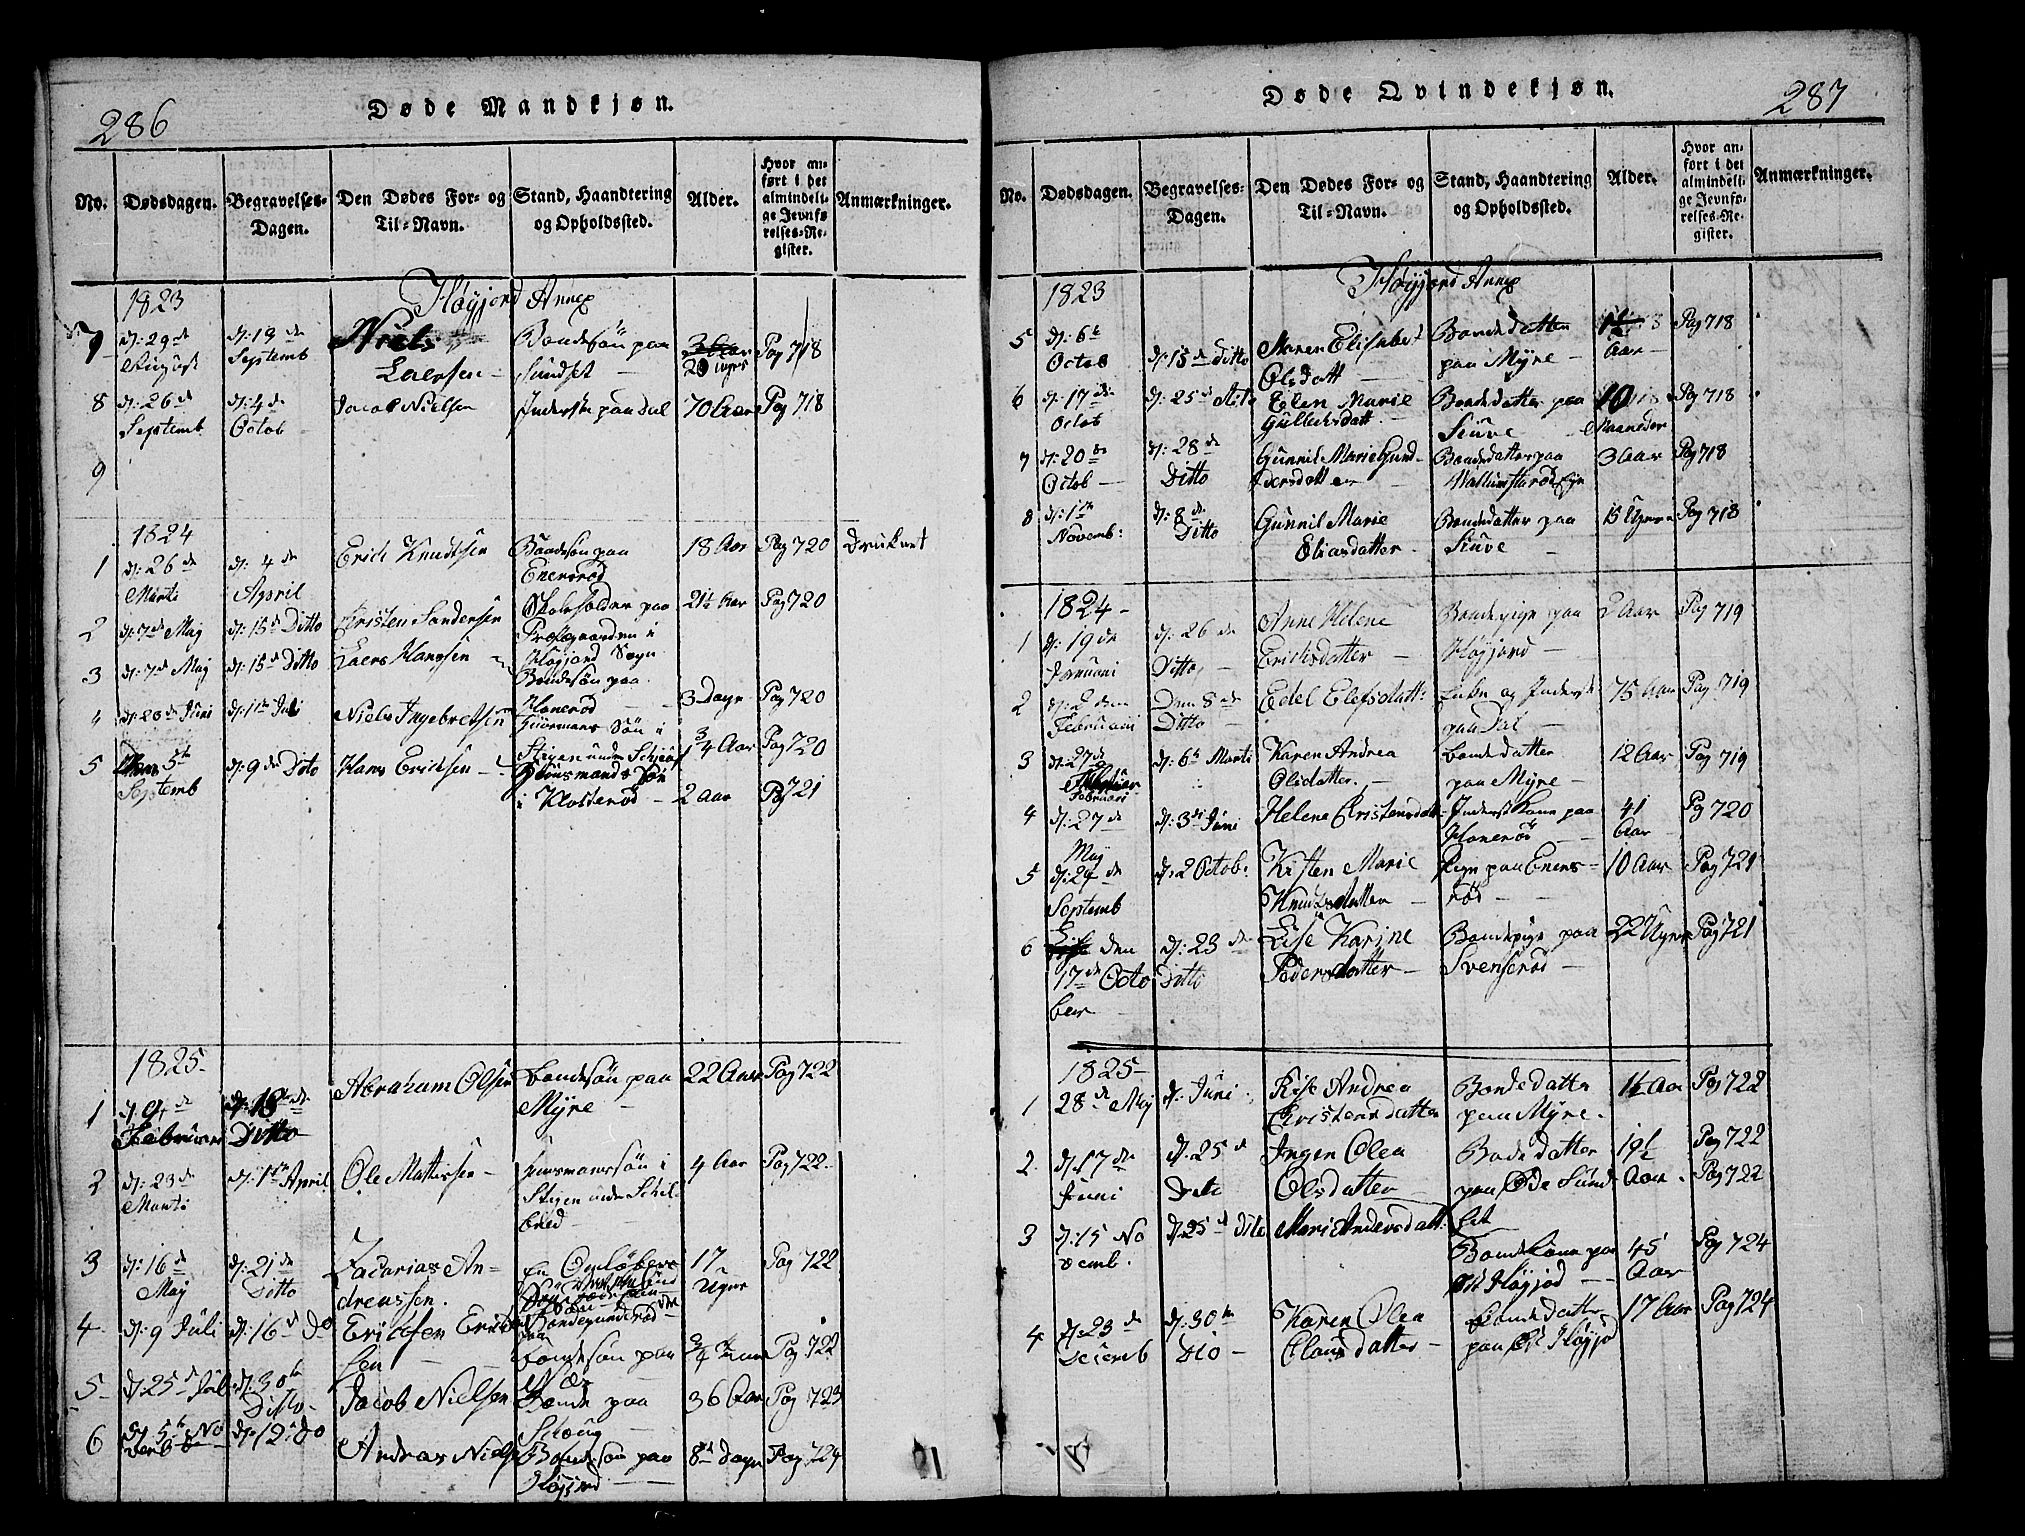 286
Døde Mandkjøn.
No. Dødsdagen. Begravelses-Dagen. Den Dødes For- og Til-Navn. Stand, Haandtering og Opholdssted. Alder. Hvor anført i det almindelige Jevnførelses-Register. Anmærkninger.
Høyjord Annex
1823
7 d: 29de August d: 19de Septemb Niels Laersen Bondesøn paa Sundset 20 Uger Pag 718
8 d: 26de Septemb d: 4de Octob Jacob Nielsen Inderste paa Dal 70 Aar Pag 718
9
1824
1 d: 26de Marti d: 4de April Erich Knudsen Bondesøn paa Enersrød 18 Aar Pag 720 Druknet
2 d: 7de May d: 15de Ditto Kristen Sandersen Skoleholder paa Præsgaarden i Høyjord Sogn 21½ Aar Pag 720
3 d: 7de May d: 15de Ditto Laers Hansen Bondesøn paa Hanerød 3 Dage Pag 720
4 d: 26de Juni d: 11te Juli Niels Ingebretsen Huusmans Søn i Stigen under 3/4 Aar Pag 720
5 5te Septemb d: 9de Ditto Hans Ericksen Huusmands Søn i Klosterød 2 Aar Pag 721
1825
1 d: 9de Februari d: 18de Ditto Abraham Olsen Bondesøn paa Myre 22 Aar Pag 722
2 d: 23de Marti d: 1te April Ole Mathissen Huusmanssøn i Stigen under Schilbred 4 Aar Pag 722
3 d: 16de May d: 21de Ditto Zacarias Andreassen En Omløbers 17 Uger Pag 722
4 d: 9 Juli d: 16de Do Ericksen Ericksen Bondesøn paa 3/4 Pag 722
5 d: 25de Juli d: 30te Ditto Jacob Nielsen Bonde paa Schoug 36 Aar Pag 723
6 d: 5te November d: 12 Do Andras Niels Bondesøn paa Høyjord 8 Dage Pag 724
287
Døde Qvindekjøn.
No. Dødsdagen. Begravelses-Dagen. Den Dødes For- og Til-Navn. Stand, Haandtering og Opholdssted. Alder. Hvor anført i det almindelige Jevnførelses-Register. Anmærkninger.
Høyjord Annex
1823
5 d: 6te Octob d: 15de Ditto Maren Elisabet Olsdatt Bondedatter paa Myre 1½ Aar Pag 718
6 d: 17de Octob d: 25de Dito Elen Marie Gullichsdatt Bondedatter paa Stuve 10 Maaneder Pag 718
7 d: 20de Octob d: 28de Ditto Gunnil Marie Gundersdatter Bondedatter paa Vallumsrød Eje 3 Aar Pag 718
8 d: 1te Novemb: d: 8de Ditto Gunnil Marie Eliasdatter Bondedatter paa Stuve 15 Uger Pag 718
1824
1 d: 19de Januari d: 26de Ditto Anne Helene Ericksdatter Bondepige paa Høyjord 2 Aar Pag 719
2 d: 2den Februari Den 8de Ditto Edel Elefsdatt: Enke og Inderst paa Dal 75 Aar Pag 719
3 d: 27de Februari d: 6te Marti Karen Andrea Olsdatter Bondedatter paa Myre 12 Aar Pag 719
4 d: 27de May d: 3die Juni Helene Christensdatt Inderst Kone paa Hanerød 41 Aar Pag 720
5 d: 24de Septemb d: 2 Octob: Kisten Marie Knudsdatter Pige paa Enersrød 10 Aar Pag 721
6 den 17de October d: 23de Ditto Lise Karine Pedersdatter Bondepige paa Svenserød 22 Uger Pag 721
1825
1 28de May d: Juni Lise Andrea Kristensdatter Bondedatter paa Myre 1½ Aar Pag 722
2 d: 17de Juni d: 25de Dito Inger Olea Olsdatter Bondedatter paa Øde Sundset 19½ Aar Pag 722
Pag 722
3 d: 15 Novemb. d: 25de Dito Mari Andersdatt: Bondekone paa Høyjord 45 Aar Pag 724
4 d: 23de Decemb d: 30te Dito Karen Olea Clausdatter Bondedatter paa Høyjord 17 Aar Pag 724